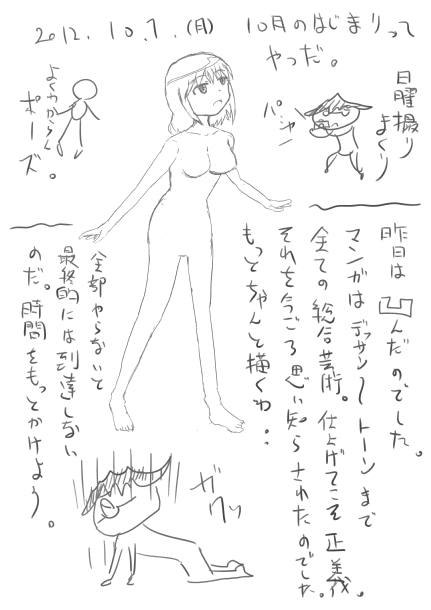 2012.10.1.(月) 10月のはじまりって
やつだ。
日曜撮り
まくり
パシャ
よくわからん
ポーズ。
昨日は凹んだのでした。
マンガはデッサン〜トーンまで
全ての総合芸術。仕上げてこそ正義。
それを今ごろ思い知らされたのでした。
もっとちゃんと描くわ‥
全部やらないと
最終的には到達しない
のだ。時間をもっとかけよう。
ガクッ